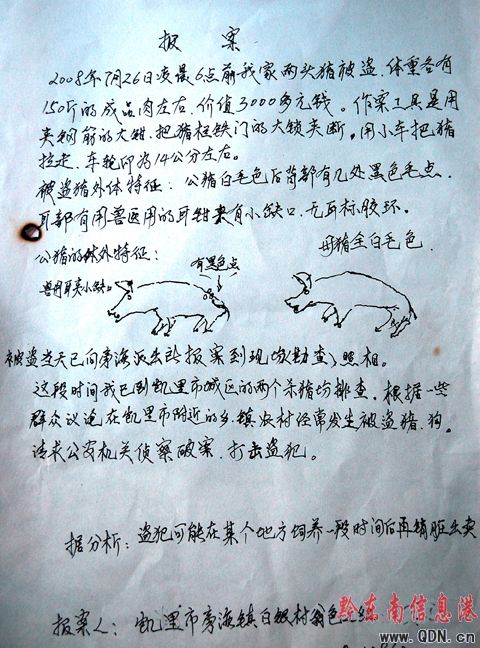 报 案
2008年7月26日凌晨6点前我家两头猪被盗.体重各有
150斤的成品肉左右.价值3000多元钱。作案工具是用
夹钢筋的大钳.把猪栏铁门的大锁夹断.用小车把猪
拉走.车轮印为14公分左右。
被盗猪外体特征:公猪白毛色后背部有几处黑色毛点.
耳部有用兽医用的耳钳夹有小缺口.无耳标胶环。
公猪的体外特征:
有黑色点
母猪全白毛色.
兽用耳夹小缺口
被盗当天已向旁海派出所报案到现场(勘查)照相。
这段时间我已到凯里市城区的两个杀猪场排查.根据一些
群众议论.在凯里市附近的乡.镇农村经常发生被盗猪.狗。
请求公安机关侦察破案.打击盗犯。
据分析:盗犯可能在某个地方饲养一段时间后再销脏出卖
报案人:凯里市旁海镇白
黔东南信息港
www.QDN.cn